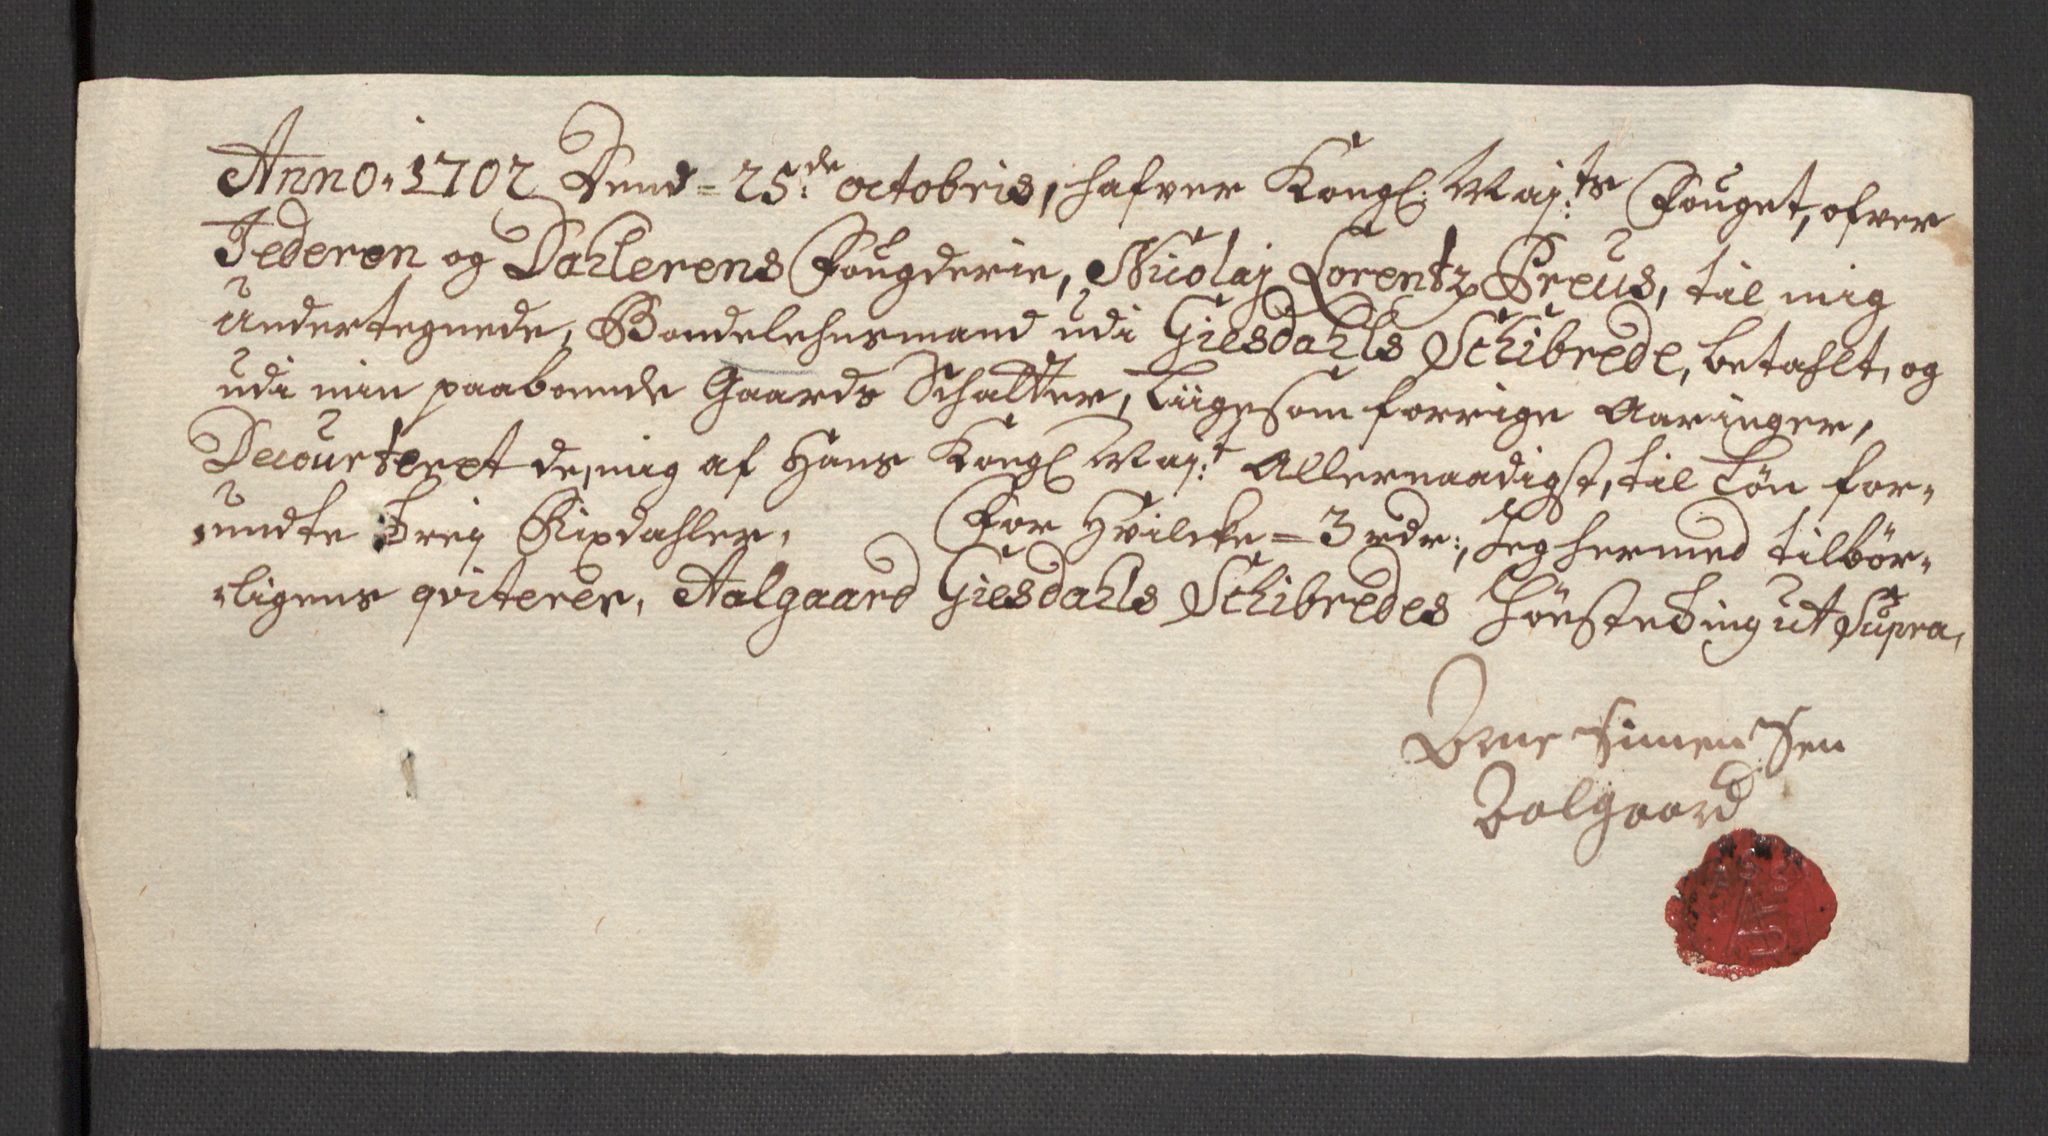 Anno 1702 Dend = 25:de octobris, hafver Kongl: Maj:ts Fouget, ofver
Jederen og Dahlerens Fougderie, Nicolaj Lorentz Preus, til mig
undertegnede, Bondelehnsmand udi Giesdahls Schibrede, betahlt, og
udi min paaboende Gaards Schatter, Liigesom forrige Aaringer,
Decourteret de, mig af Hans Kongl Maj:t Allernaadigst, til Løn for-
undte Treij Rixdahler, For Hvilcke = 3 rdr:, Jeg hermed tilbør-
ligens qviterer, Aalgaard Giesdahls Schibredes Høste Ting ut Supra,
Simensen
Aalgaard